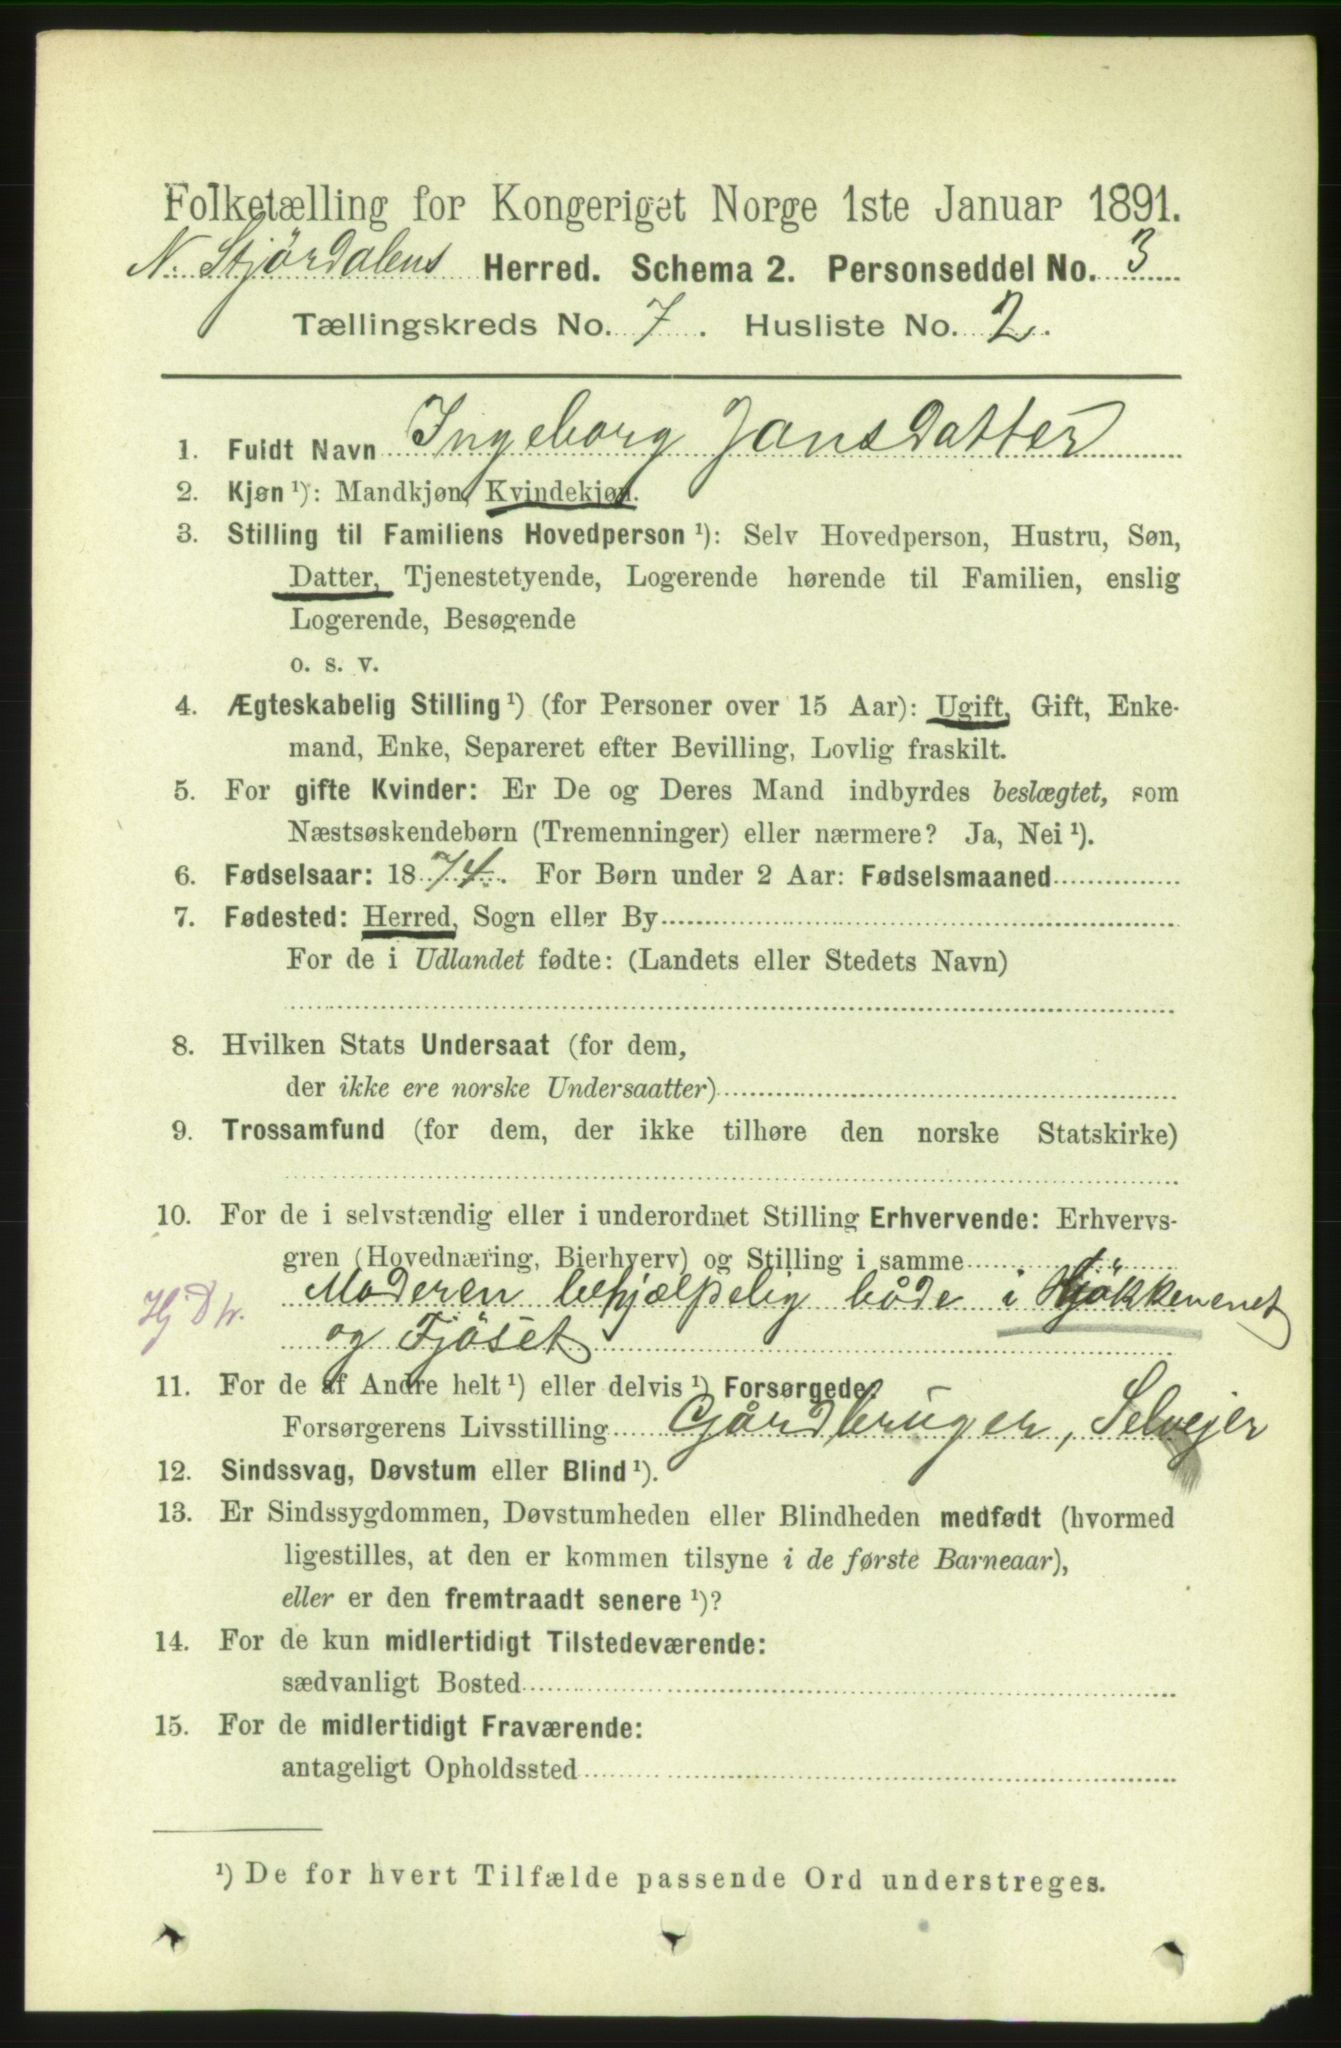 Folketælling for Kongeriget Norge 1ste Januar 1891.
N. Stjördalens Herred. Schema 2. Personseddel No. 3
Tællingskreds No. 7. Husliste No. 2.
1. Fuldt Navn Ingeborg Jonsdatter
2. Kjøn ¹): Mandkjøn, Kvindekjøn.
3. Stilling til Familiens Hovedperson ¹): Selv Hovedperson, Hustru, Søn,
Datter, Tjenestetyende, Logerende hørende til Familien, enslig
Logerende, Besøgende
o. s. v.
4. Ægteskabelig Stilling ¹) (for Personer over 15 Aar): Ugift, Gift, Enke-
mand, Enke, Separeret efter Bevilling, Lovlig fraskilt.
5. For gifte Kvinder: Er De og Deres Mand indbyrdes beslægtet, som
Næstsøskendebørn (Tremenninger) eller nærmere? Ja, Nei ¹).
6. Fødselsaar: 1874. For Børn under 2 Aar: Fødselsmaaned
7. Fødested: Herred, Sogn eller By
For de i Udlandet fødte: (Landets eller Stedets Navn)
8. Hvilken Stats Undersaat (for dem,
der ikke ere norske Undersaatter)
9. Trossamfund (for dem, der ikke tilhøre den norske Statskirke)
10. For de i selvstændig eller i underordnet Stilling Erhvervende: Erhvervs-
gren (Hovednæring, Bierhverv) og Stilling i samme
Moderen behjælpelig både i Kjökkenenet
Hj D tr.
og Fjöset
11. For de af Andre helt ¹) eller delvis ¹) Forsørgede:
Forsørgerens Livsstilling Gårdbruger, Selvejer
12. Sindssvag, Døvstum eller Blind ¹).
13. Er Sindssygdommen, Døvstumheden eller Blindheden medfødt (hvormed
ligestilles, at den er kommen tilsyne i de første Barneaar),
eller er den fremtraadt senere ¹)?
14. For de kun midlertidigt Tilstedeværende:
sædvanligt Bosted
15. For de midlertidigt Fraværende:
antageligt Opholdssted
¹) De for hvert Tilfælde passende Ord understreges.